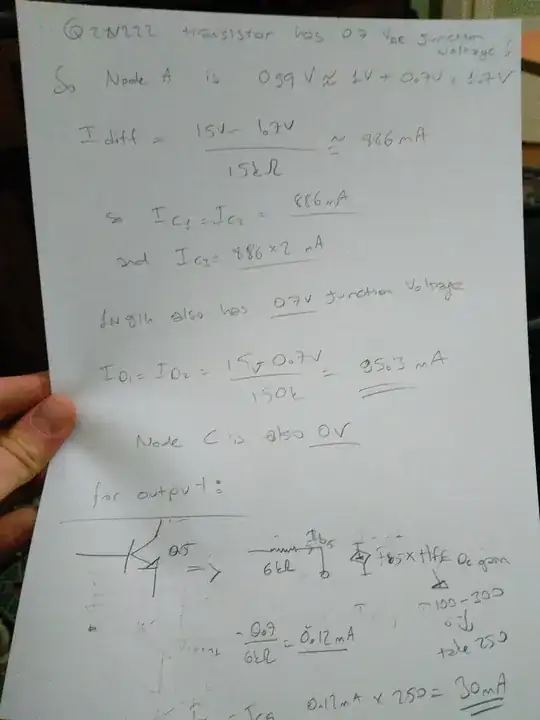 Q2N222 transistor has 0.7 Vbe junction voltage!
So Node A is 0.99 V ≈ 1V + 0.7V = 1.7V
I diff = 15V - 1.7V / 15kΩ ≈ 886 mA
so Ic1 = Ic2 = 886 mA
and Ic3 = 886 x 2 mA
also has 0.7V junction Voltage
ID1 = ID2 = 15V - 0.7V / 150k = 95.3 mA
Node C is also 0V
for output:
Q5 => 6kΩ Ib5 Ib5 x HFE DC gain
100-300
take 250
0.7 / 6kΩ = 0.12mA
0.12mA x 250 = 30mA